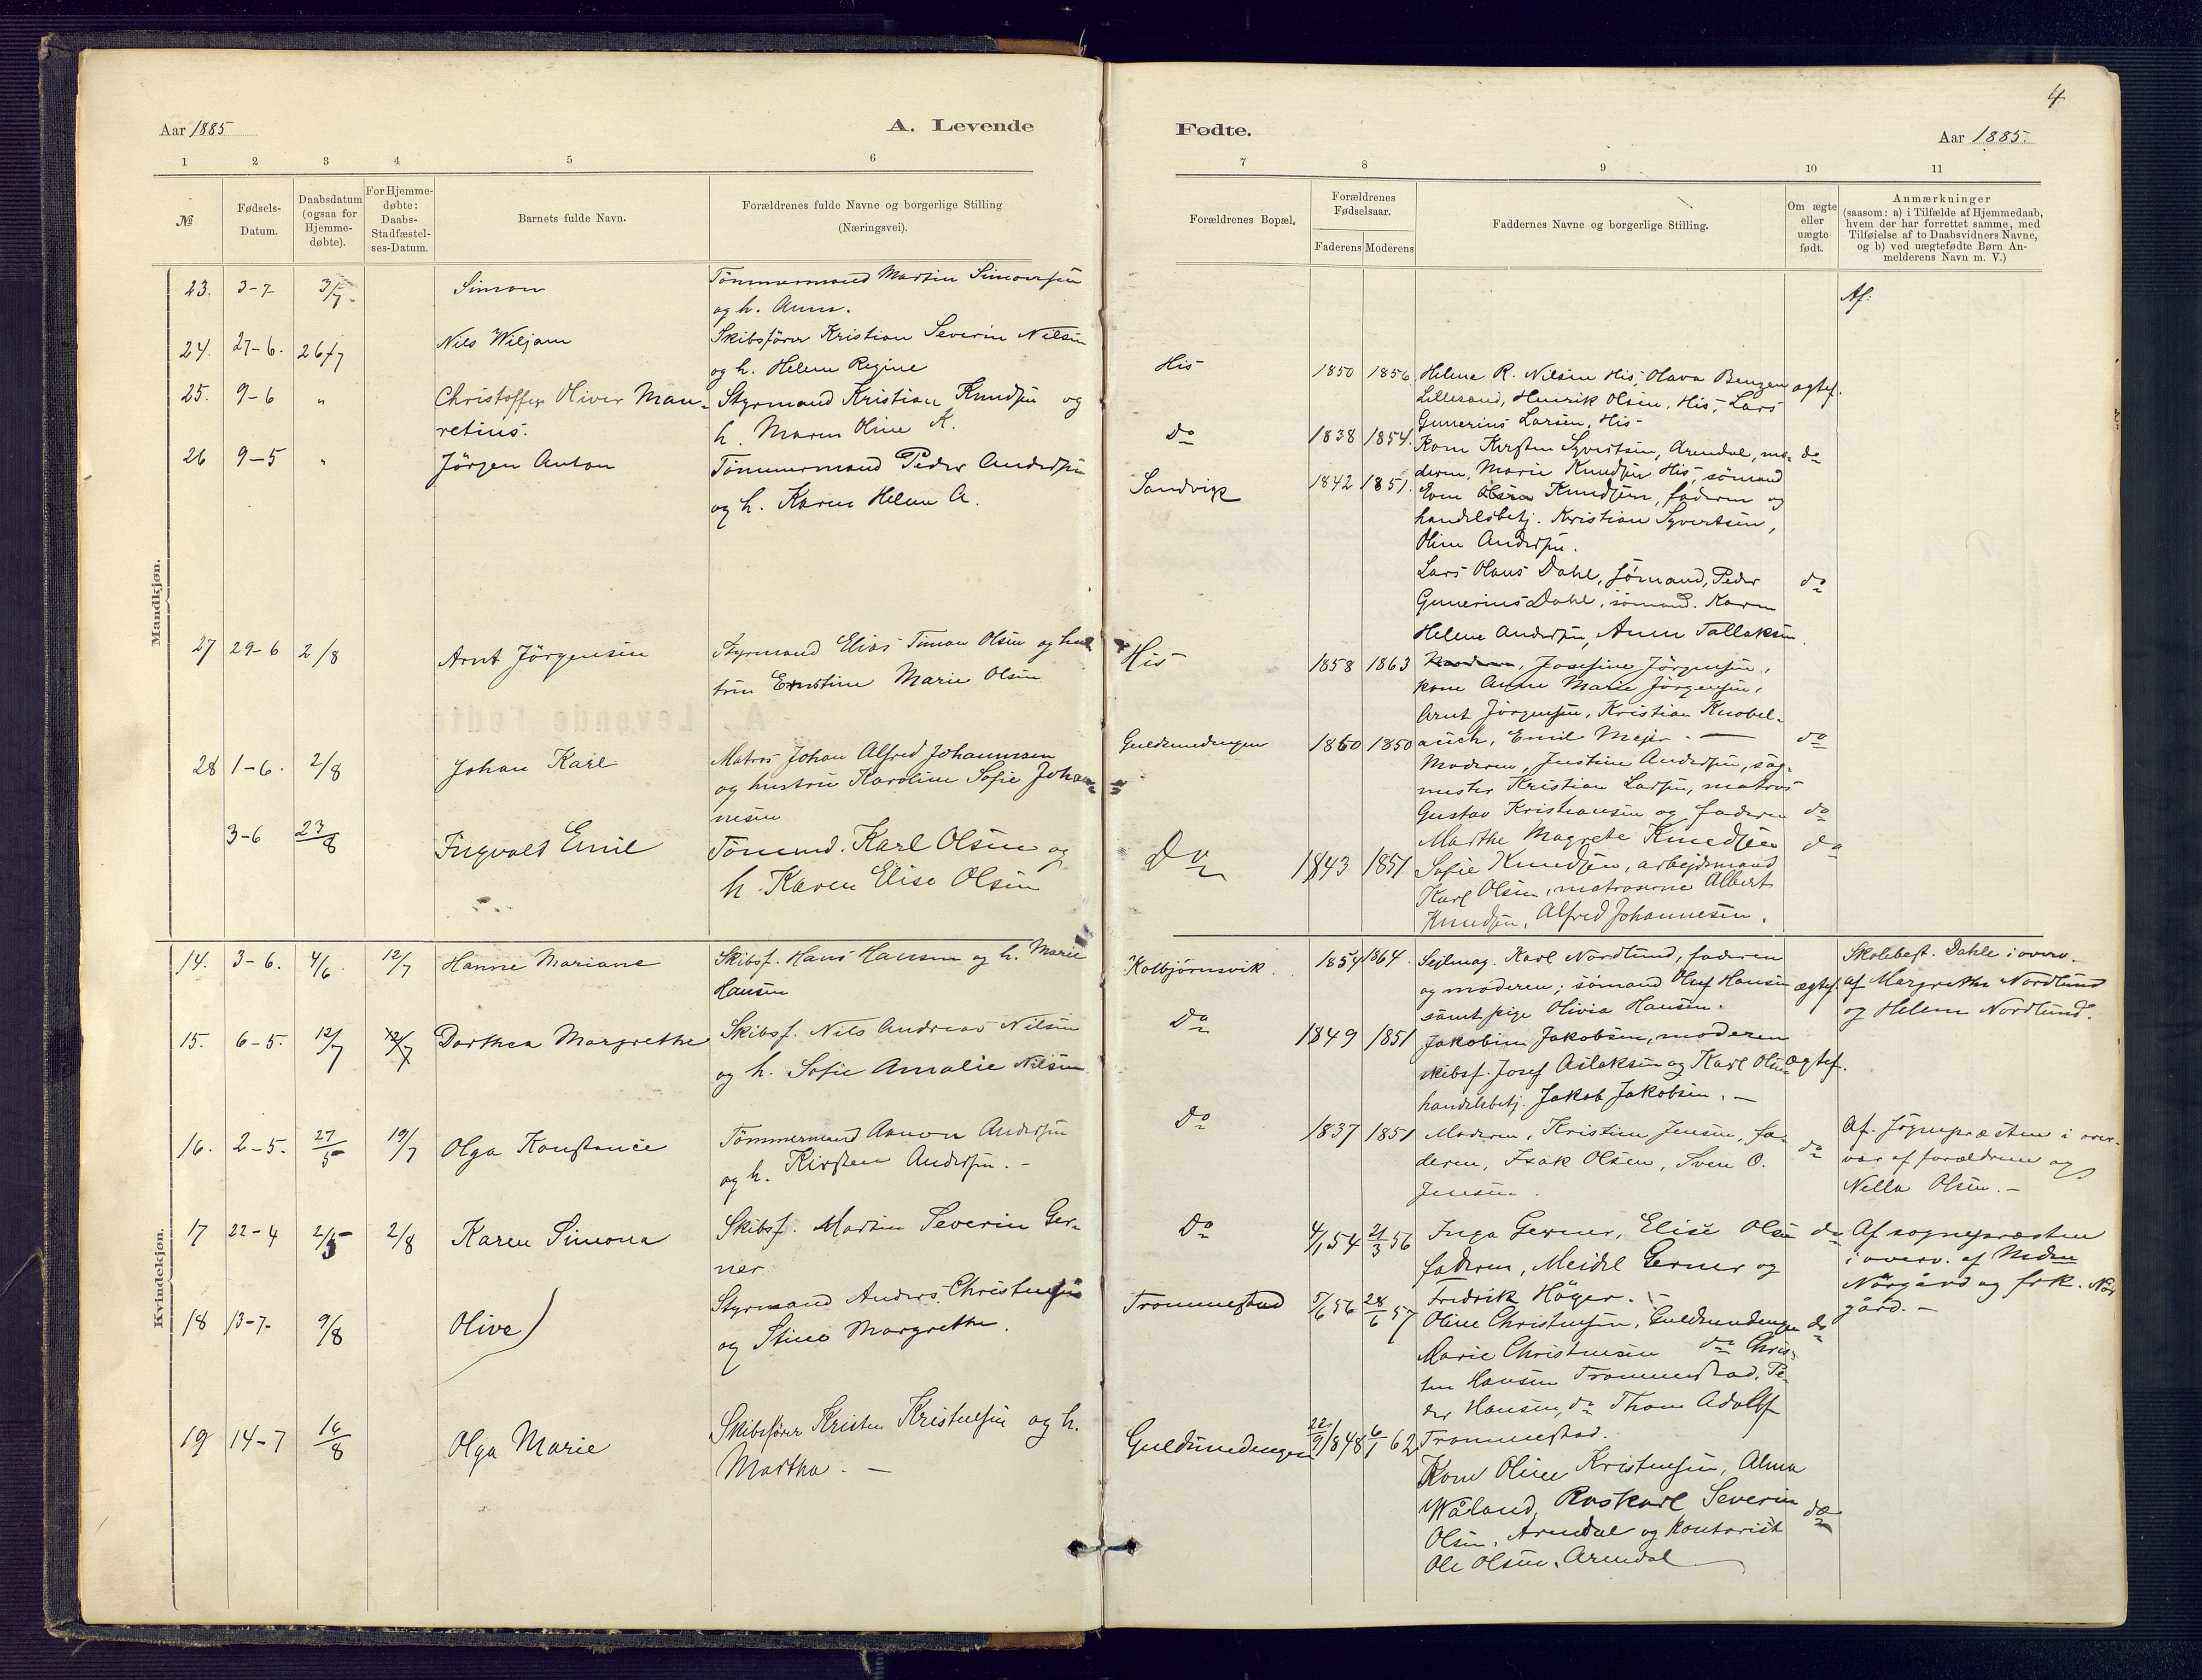 4
Aar 1885
A. Levende
Fødte.
Aar 1885.
1 2 3 4 5 6
7 8 9 10 11
№
Fødsels-
Datum.
Daabsdatum
(ogsaa for
Hjemme-
døbte).
For Hjemme-
døbte:
Daabs-
Stadfæstel-
ses-Datum.
Barnets fulde Navn.
Forældrenes fulde Navne og borgerlige Stilling
(Næringsvei).
Forældrenes Bopæl.
Forældrenes
Fødselsaar.
Faderens Moderens
Faddernes Navne og borgerlige Stilling.
Om ægte
eller
uægte
født.
Anmærkninger
(saasom: a) i Tilfælde af Hjemmedaab,
hvem der har forrettet samme, med
Tilføielse af to Daabsvidners Navne,
og b) ved uægtefødte Børn An-
melderens Navn m. V.)
Mandkjøn.
23. 3-7 3/7. Simon Tömmermand Martin Simonsen
og h. Anna.
Af:
24. 27-6. 26/7 Nils Wiljam Skibsfører Kristian Severin Nilsen
og h. Helene Regine
His 1850 1856. Helene R. Nilsen His, Olava Benzen ægtef.
Lillesand, Henrik Olsen, His, Lars
Gunerius Larsen, His-
25. 9-6 " Christoffer Oliver Mau- Styrmand Kristian Knudsen og
retius. h. Maren Oline K.
Do 1838 1854. Kone Kirsten Syvertsen, Arendal, mo- do
deren, Marie Knudsen His, sömand
Even Knudsen, faderen og
handelsbetj. Kristian Syvertsen,
Oline Andersen.
26 9-5 " Jörgen Anton Tömmermand Peder Andersen
og h. Karen Helene A.
Sandvik 1842 1851.
Lars Olaus Dahl, sömand, Peder do
Gunerius Dahl, sömand. Karen
Helene Andersen, Anne Tallaksen.
27 29-6 2/8 Arnt Jörgensen Styrmand Elias Timan Olsen og hus
tru Ernstine Marie Olsen
His 1858 1863 Moderen, Josefine Jörgensen,
kone Anne Marie Jörgensen,
Arnt Jörgensen, Kristian Knobel-
auch, Emil Mejer. — do
28 1-6. 2/8 Johan Karl Matros Johan Alfred Johannesen
og hustru Karoline Sofie Johan-
nesen
Guldsmedengen 1860 1850
Moderen, Justine Andersen, sag-
mester Kristian Larsen, matros
Gustav Kristiansen og faderen do
3-6 23/8 Ingvald Emil Tömmd. Karl Olsen og
h. Karen Elise Olsen
Do 1843 1851
Marthe Magrete Knudsen do
Sofie Knudsen, arbejdsmand
Karl Olsen, matroserne Albert
Knudsen, Alfred Johannesen.
Kvindekjøn.
14. 3-6. 4/6. 12/7 Hanne Mariane Skibsf. Hans Hansen og h. Marie
Hansen
Kolbjörnsvik. 1854 1864. Sejlmag. Karl Nordlund, faderen
og moderen; sömand Oluf Hansen ægtef.
samt pige Olivia Hansen.
Skolebest. Dahle i overv.
af Margrethe Nordlund
og Helene Nordlund.
15. 6-5. 12/7 12/7 Dorthea Margrethe Skibsf. Nils Andreas Nilsen
og h. Sofie Amalie Nilsen
Do 1849 1851 Jakobine Jakobsen, moderen
skibsf. Josef Aslaksen og Karl Olsen ægtef.
handelsbetj. Jakob Jakobsen. —
16. 2-5. 27/5 19/7 Olga Konstance Tömmermand Aanon Andersen
og h. Kirsten Andersen. -
Do 1837 1851 Moderen, Kristine Jensen, fa-
deren, Isak Olsen, Sven O. do
Jensen.
Af. sognepræsten i over-
vær af forældrene og
Nella Olsen. -
17 22-4 2/5 2/8 Karen Simona Skibsf. Martin Severin Ger-
ner
Do 4/1 54 21/3 56 Inga Gerner, Elise Olsen do
faderen, Meidel Gerner og
Fredrik Höyer. -
Af sognepræsten
i overv. af Mdm
Nörgård og frk. Nör
gård. -
18 13-7. 9/8 Olive Styrmand Anders Christensen
og Stine Margrethe.
Trommestad 5/6 56 28/6 57 Oline Christensen, Guldsmedengen do
Marie Christensen do Chris-
ten Hansen Trommestad, Pe-
der Hansen, do Thom Adolf
Trommestad.
19 14-7 16/8 Olga Marie Skibsfører Kristen Kristensen og h.
Martha. —
Guldsmedengen 22/9 1848 6/1 62
Kone Oline Kristensen, Alma
Wåland, Roskarl Severin do
Olsen, Arendal og kontorist
Ole Olsen, Arendal